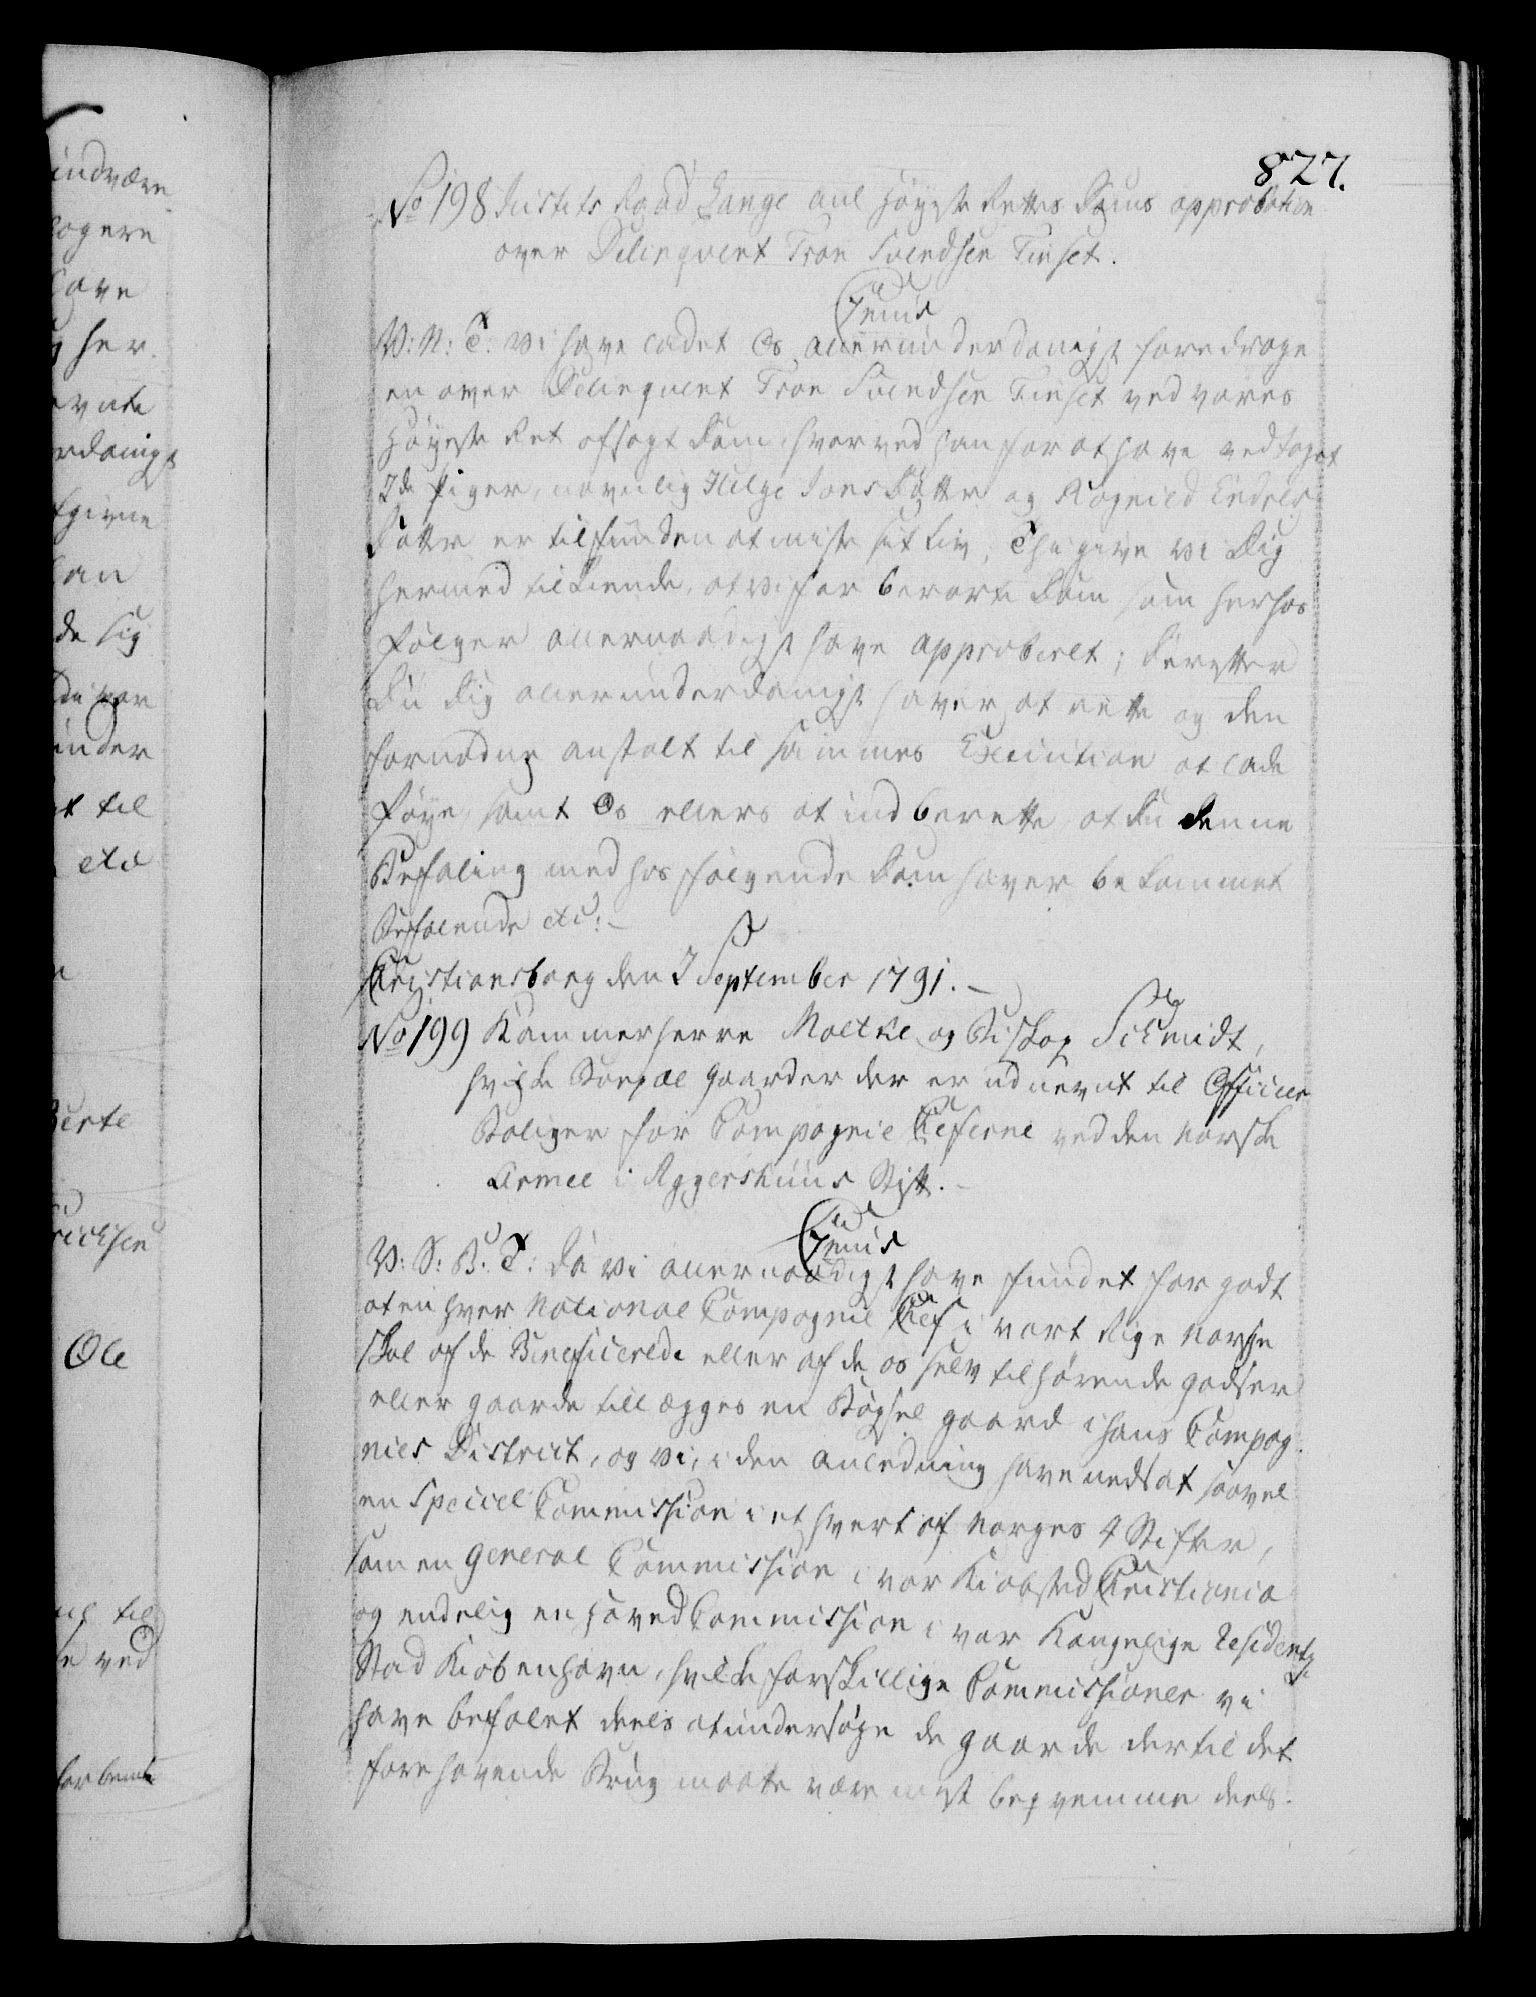 827.
No 198 Justits Raad Lange anl Høyeste Rettes Doms approbation
over Delinqvent Tron Svendsen Tinset.
C7mus
V: N: T: Vi have ladet Os allerunderdanigst foredrage
en over Delinqvent Tron Svendsen Tinset ved vores
Høyeste Ret afsagt Dom, hvorved han for at have
2de Piger, navnlig Helge Jons Datter og Ragnild Endres
Datter er tilfunden at miste sit Liv; Thi give vi Dig
hermed tilkiende, at vi forberørte Dom som herhos
følger allernaadigst have approberet; Derefter
Du Dig allerunderdanigst haver at rette og den
fornødne anstalt til sammes Execution at lade
føye, samt Os ellers at indberette, at du denne
Befaling med hosfølgende Dom haver bekommet
Befalende etc:
Christiansborg den 2 September 1791.
No 199 Kammerherre Moltke og Biskop Schmidt,
hvilke Bøxel Gaarder der er udnevnt til Officeer
Boliger for Compagnie Cheferne ved den norske
Armee i Aggershuus Stift.
C7mus
V: S: B: T: Da vi allernaadigst have fundet for godt
at en hver National Compagnie Chef i vort Rige Norge
skal af de Beneficerede eller af de os selv tilhørende godser
eller gaarde tillægges en Bøxel gaard i hans Compag-
nies District, og vi, i den anledning have nedsat saavel
en Speciel Commission i et hvert af Norges 4 Stifter,
som en General Commission i vor Kiøbsted Christiania
og endelig en HovedCommission i vor Kongelige Residentz
Stad Kiøbenhavn, hvilke forskillige Commissioner vi
have befalet deels at undersøge de gaarde der til det
forehavende Brug maatte være mest beqvemme deels